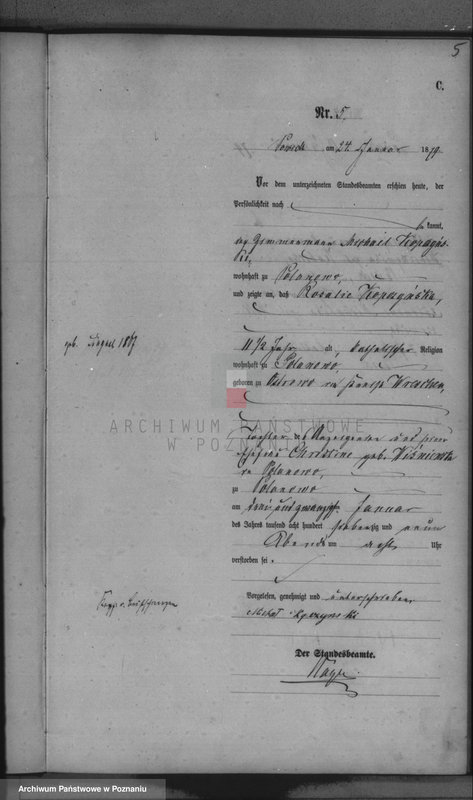 5
C.
Nr. 5.
am 24. Januar 1879
Vor dem unterzeichneten Standesbeamten erschien heute, der
Persönlichkeit nach
kannt,
der Zimmermann Michael
wohnhaft zu Polanowo,
und zeigte an, daß Rosalie Kopczyńska,
geb. August 1867
11 1/2 Jahr alt, katholischer Religion
wohnhaft zu Polanowo,
geboren zu Ostrowo
ARCHIWUM PAŃSTWOWE
W POZNANIU
Tochter des Anzeigenden und seiner
Ehefrau Christine geb. Wiśniewska
in Polanowo,
zu Polanowo
am drei und zwanzigsten Januar
des Jahres tausend acht hundert siebenzig und neun
Abends um acht Uhr
verstorben sei.
Vorgelesen, genehmigt und unterschrieben
Michał
Der Standesbeamte.
Archiwum Państwowe w Poznaniu